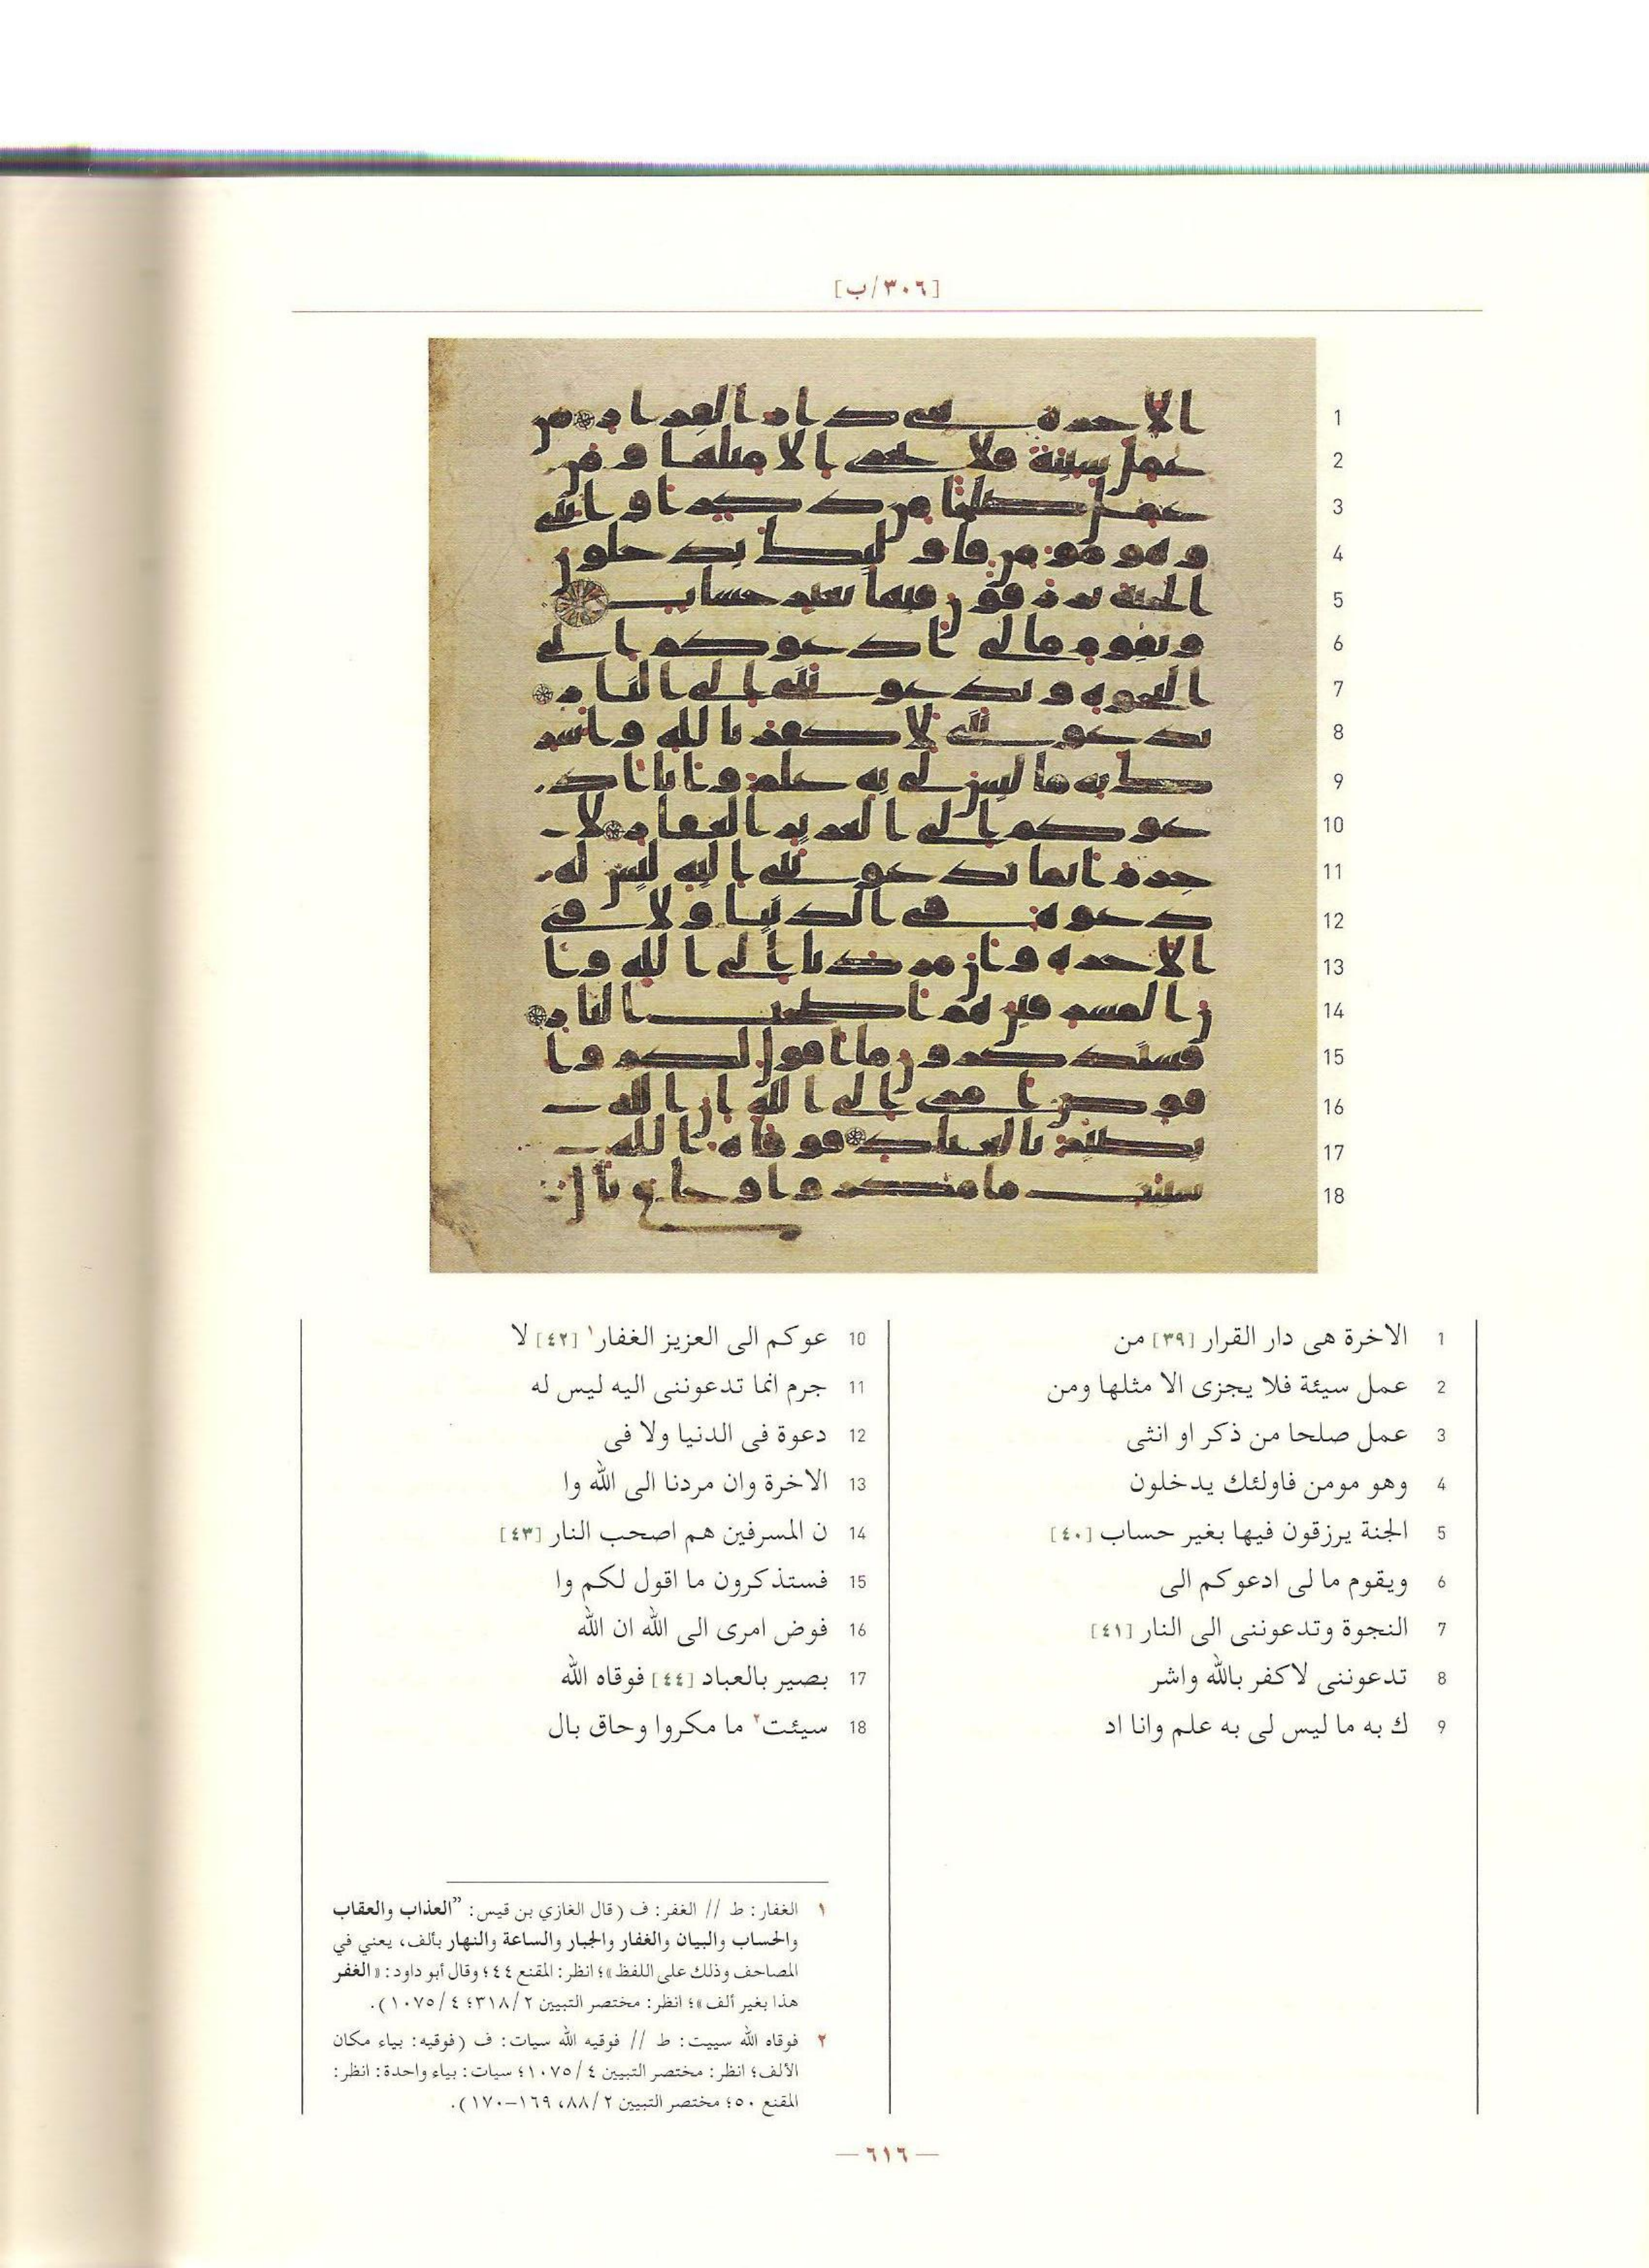 [٣٠٦/ب]
1 الاخرة هى دار القرار [٣٩] من
2 عمل سيئة فلا يجزى الا مثلها ومن
3 عمل صلحا من ذكر او انثى
4 وهو مومن فاولئك يدخلون
5 الجنة يرزقون فيها بغير حساب [٤٠]
6 ويقوم ما لى ادعوكم الى
7 النجوة وتدعوننى الى النار [٤١]
8 تدعوننى لاكفر بالله واشر
9 ك به ما ليس لى به علم وانا اد
10 عوكم الى العزيز الغفار١ [٤٢] لا
11 جرم انما تدعوننى اليه ليس له
12 دعوة فى الدنيا ولا فى
13 الاخرة وان مردنا الى الله وا
14 ن المسرفين هم اصحب النار [٤٣]
15 فستذكرون ما اقول لكم وا
16 فوض امرى الى الله ان الله
17 بصير بالعباد [٤٤] فوقاه الله
18 سيئت٢ ما مكروا وحاق بال
١ الغفار: ط // الغفر: ف (قال الغازي بن قيس: ”العذاب والعقاب
والحساب والبيان والغفار والجبار والساعة والنهار بألف، يعني في
المصاحف وذلك على اللفظ»؛ انظر: المقنع ٤٤؛ وقال أبو داود: «الغفر
هذا بغير ألف»؛ انظر: مختصر التبيين ٣١٨/٢؛ ١٠٧٥/٤).
٢ فوقاه الله سييت: ط // فوقيه الله سيات: ف (فوقيه: بياء مكان
الألف؛ انظر: مختصر التبيين ١٠٧٥/٤؛ سيات: بياء واحدة: انظر:
المقنع ٥٠؛ مختصر التبيين ٨٨/٢، ١٦٩–١٧٠).
— ٦١٦ —